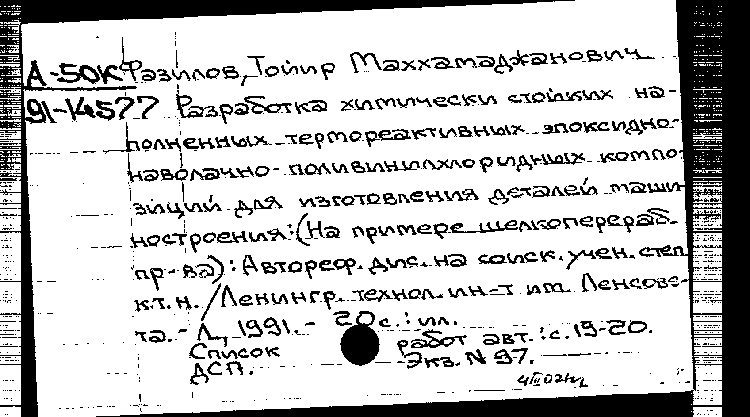 А-50К Фазилов, Тойир Маххамаджанович
91-14577 Разработка химически стойких на-
полненных термореактивных эпоксидно-
наволачно-поливинилхлоридных компо-
зиций для изготовления деталей маши-
ностроения: (На примере шелкоперераб.
пр-ва): Автореф. дис. на соиск. учен. степ.
к.т.н. / Ленингр. технол. ин-т им. Ленсове-
та. - Л., 1991. - 20 с.: ил.
Список работ авт.: с. 19-20.
ДСП. Экз. N 97.